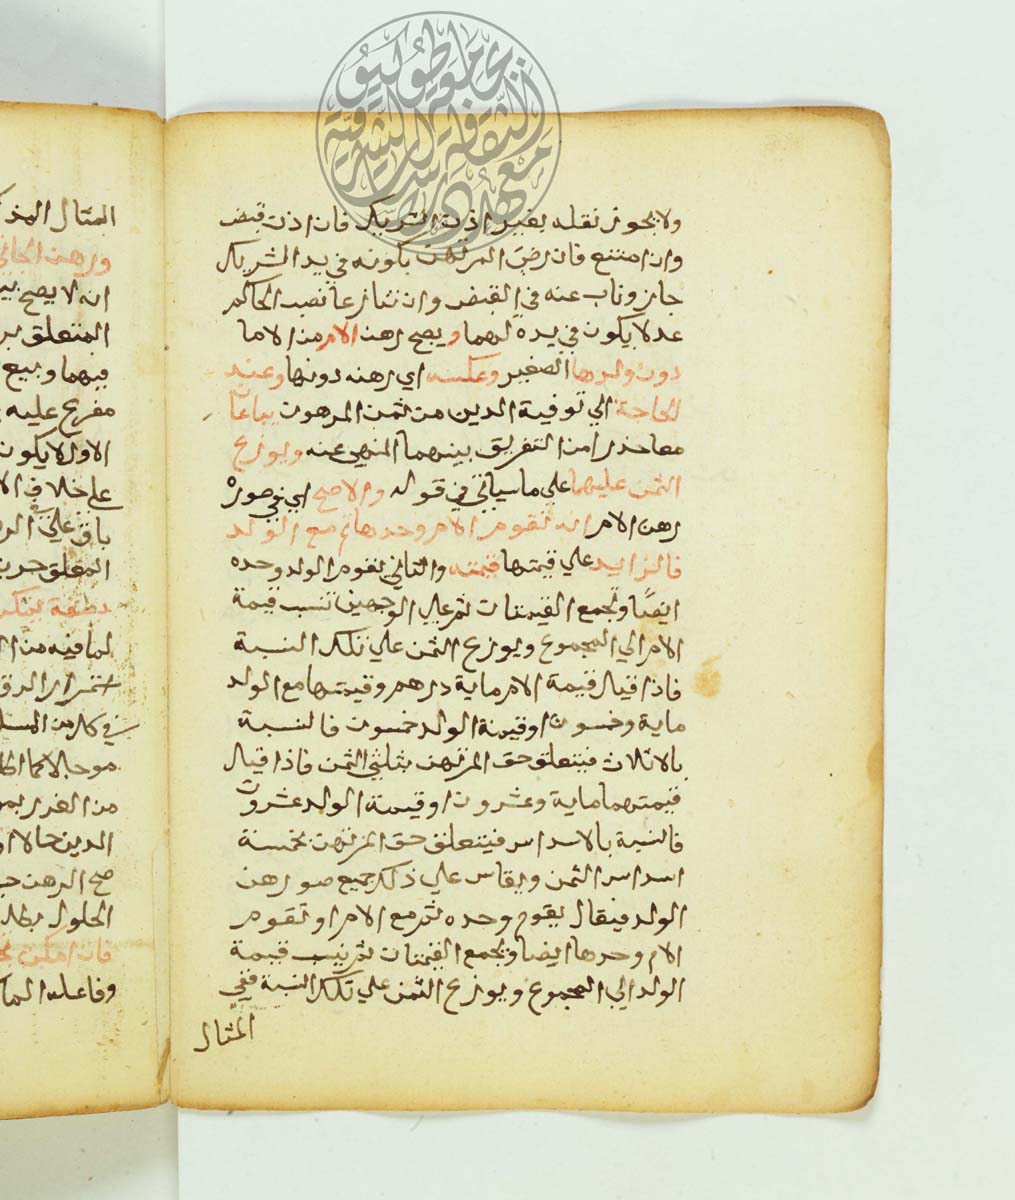 ولا يجوز نقله بغير اذن الشريك فان اذن قبض
وان امتنع فان رضي المرتهن بكونه في يد الشريك
جاز وناب عنه في القبض وان تنازعا نصب الحاكم
عدلا يكون في يده لهما ويصح رهن الام من الاما
دون ولدها الصغير وعكسه اي رهنه دونها وعند
الحاجة الي توفية الدين من ثمن المرهون يباعا
معا حذرا من التفريق بينهما المنهي عنه ويوزع
الثمن عليهما علي ما سياتي في قوله والاصح اي في صورة
رهن الام انه تقوم الام وحدها ثم مع الولد
فالزايد علي قيمتها قيمته والثاني يقوم الولد وحده
ايضا وتجمع القيمتان ثم علي الوجهين تنسب قيمة
الام الي المجموع ويوزع الثمن علي تلك النسبة
فاذا قيل قيمة الام ماية درهم وقيمتها مع الولد
ماية وخمسون او قيمة الولد خمسون فالنسبة
بالاثلاث فيتعلق حق المرتهن بثلثي الثمن فاذا قيل
قيمتهما ماية وعشرون او قيمة الولد عشرون
فالنسبة بالاسداس فيتعلق حق المرتهن بخمسة
اسداس الثمن ويقاس علي ذلك جميع صور رهن
الولد فيقال يقوم وحده ثم مع الام او تقوم
الام وحدها ايضا وتجمع القيمتان ثم تنسب قيمة
الولد الي المجموع ويوزع الثمن علي تلك النسبة ففي
المثال
المثال
ورهن الجاني
انه لا يصح
المتعلق
فيهما وبيع
مفرع عليه
الاول لا يكون
علي خلاف
باق علي
المعلق
لما فيه من
في كل من
من الغرر
الدين حالا
صح الرهن
الحلول
فان امكن